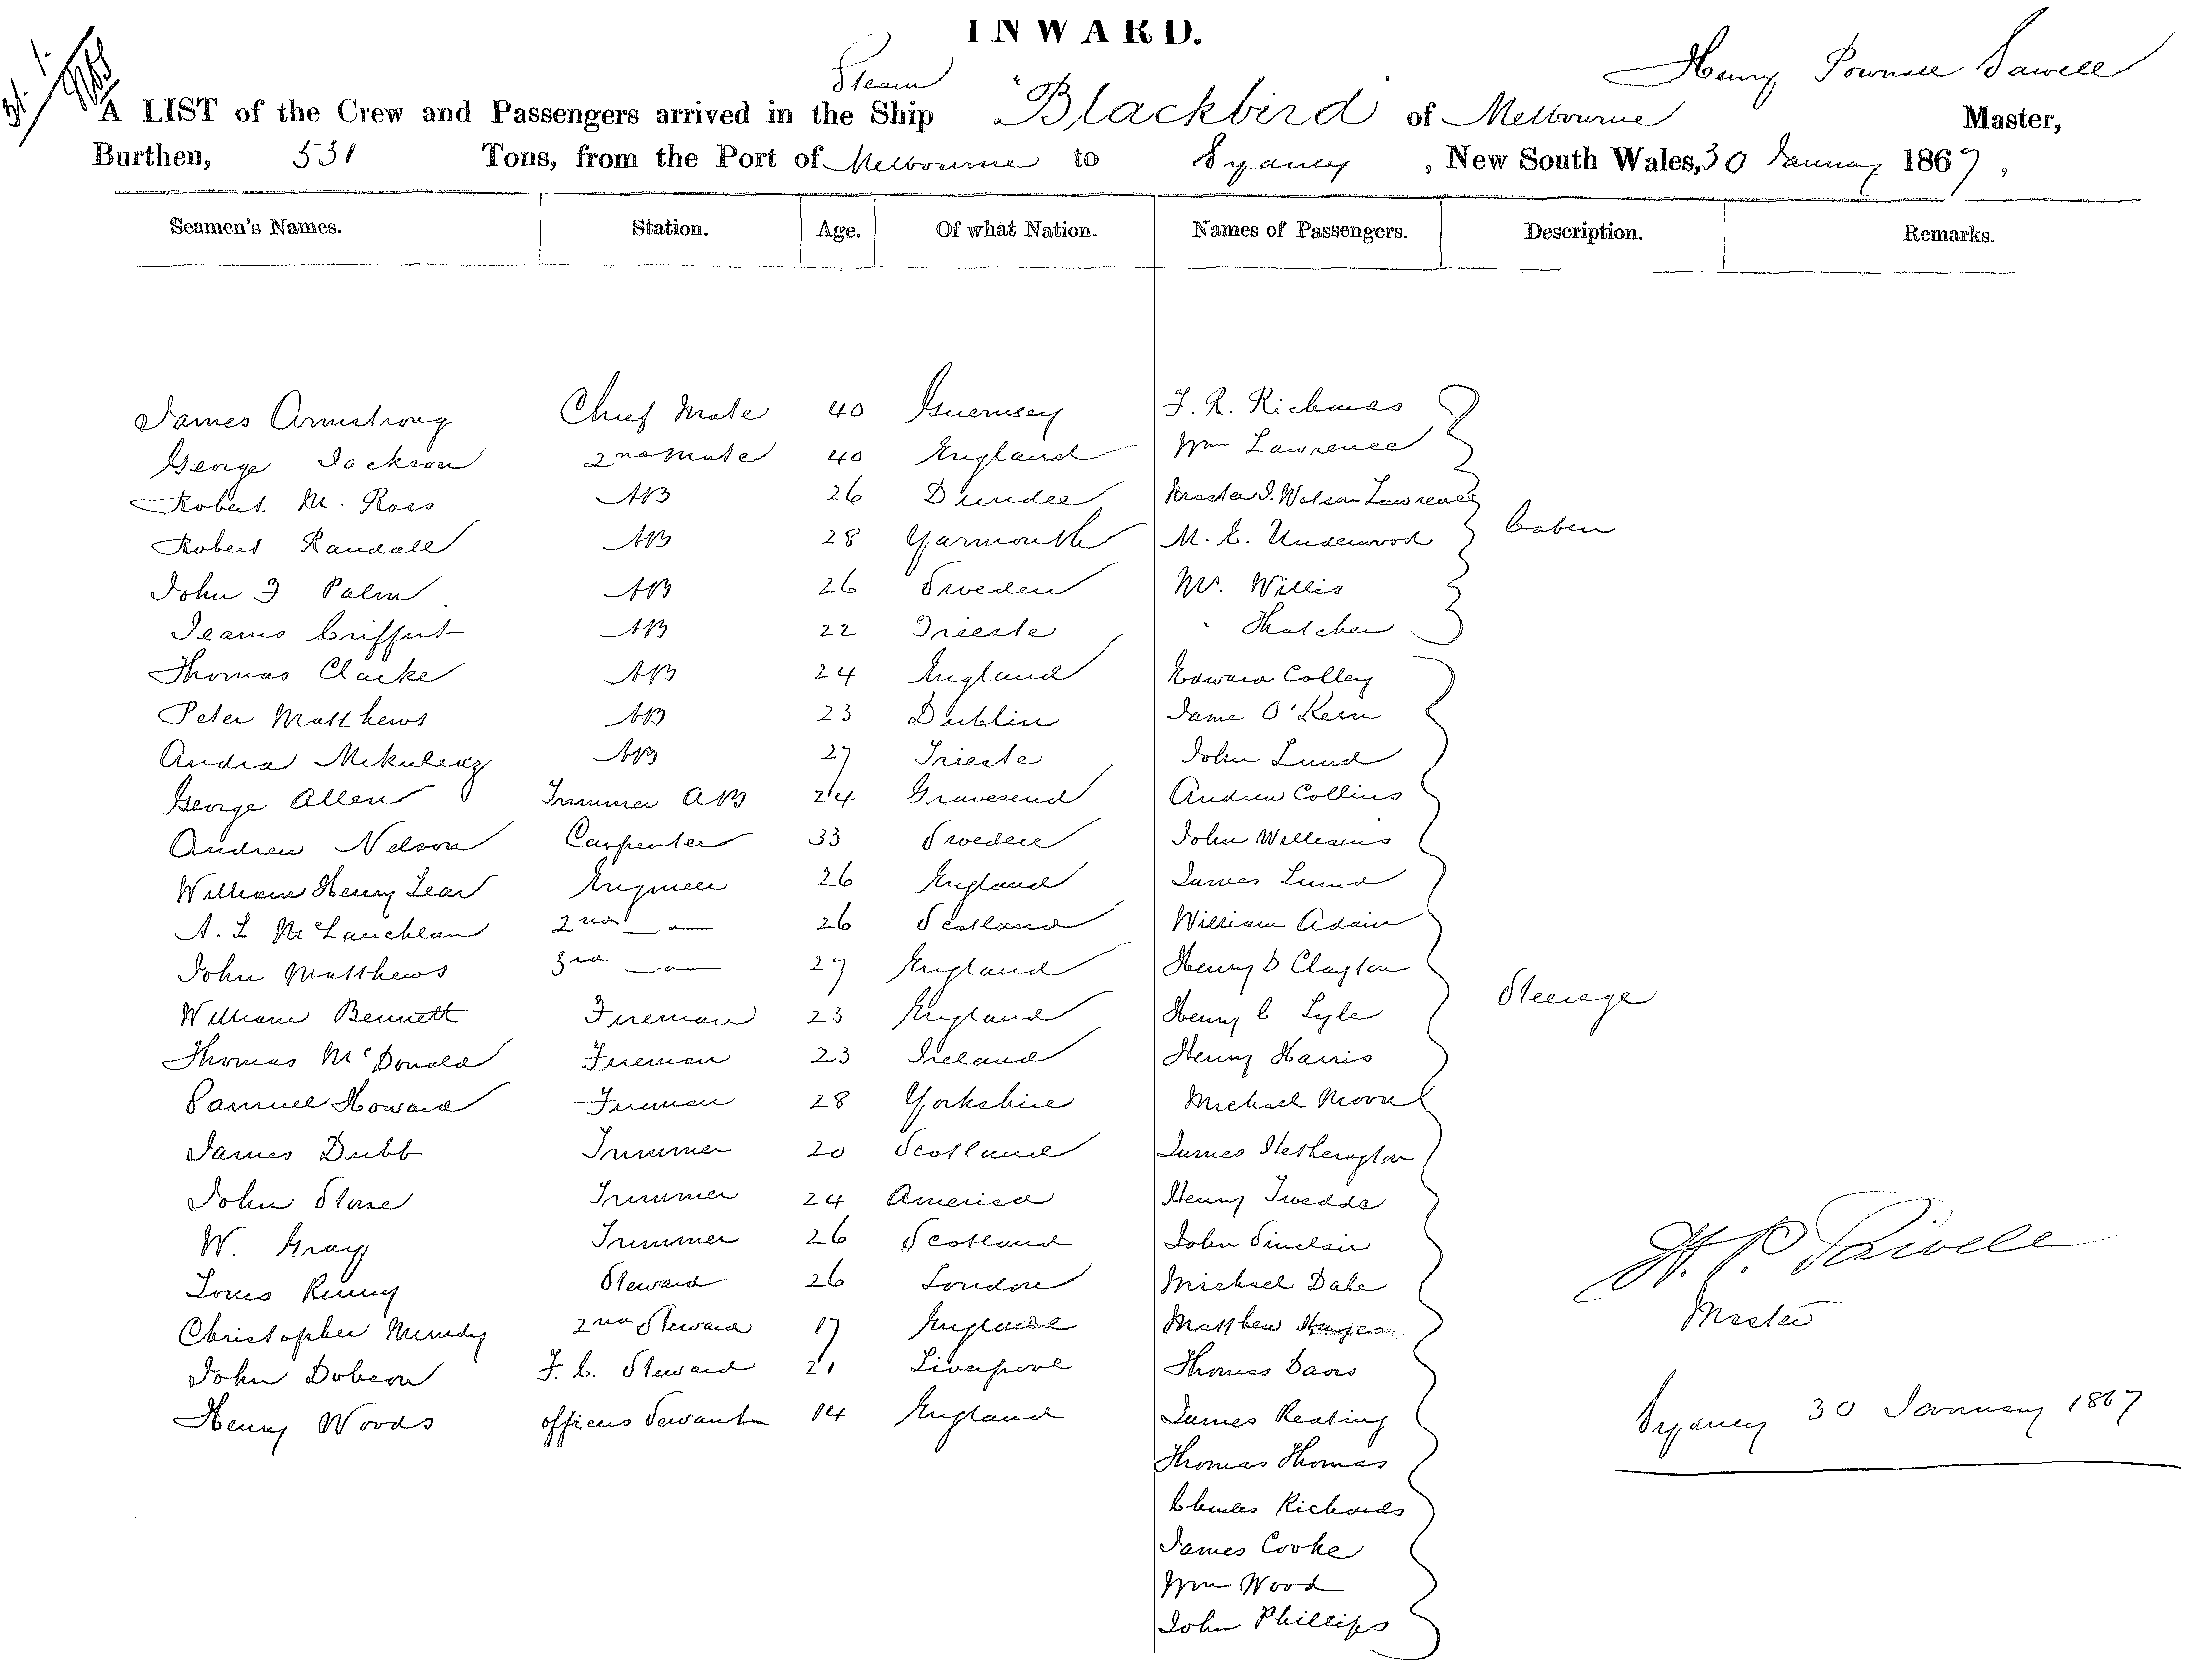 INWARD.
Steam
Henry Pownall Sawell
A LIST of the Crew and Passengers arrived in the Ship "Blackbird of Melbourne Master,
Burthen, 531 Tons, from the Port of Melbourne to Sydney, New South Wales, 30 January 1867,
Seamen's Names. Station. Age. Of what Nation. Names of Passengers. Description. Remarks.
James Armstrong Chief Mate 40 Guernsey J. R.
George Jackson 2nd Mate 40 England Wm Lawrence
Robert M. Ross AB 26 Dundee Master J. Watson Lawrence
Robert Randall AB 28 Yarmouth M. E. Underwood Cabin
John J Palm AB 26 Sweden Mr. Willis
AB 22 Trieste " Thatcher
Thomas Clarke AB 24 England Edward Colley
Peter Matthews AB 23 Dublin Jame O'Kern
Andra AB 27 Trieste John Lund
George Allen Trimmer AB 24 Gravesend Andrew Collins
Andrew Nelson Carpenter 33 Sweden John Williams
William Henry Lear Engineer 26 England James Lund
A. L McLauchlan 2nd — 26 Scotland William Adair
John Matthews 3rd — 27 England Henry D Clayton
William Bennett Fireman 23 England Henry C Lyle Steerage
Thomas McDonald Fireman 23 Ireland Henry Harris
Samuel Howard Fireman 28 Yorkshire Michael Moore
James Dubb Trimmer 20 Scotland James Hetherington
John Stone Trimmer 24 America Henry Twedde
W. Gray Trimmer 26 Scotland John Sinclair
Louis Renny Steward 26 London Michael Dale
Christopher Mundy 2nd Steward 17 England Matthew
John Dobson F. C. Steward 21 Liverpool Thomas Davis
Henry Woods officers Servant 14 England James Keating
Thomas Thomas
Charles Richards
James Cooke
Wm Wood
John Phillips
H. P. Sawell
Master
Sydney 30 January 1867